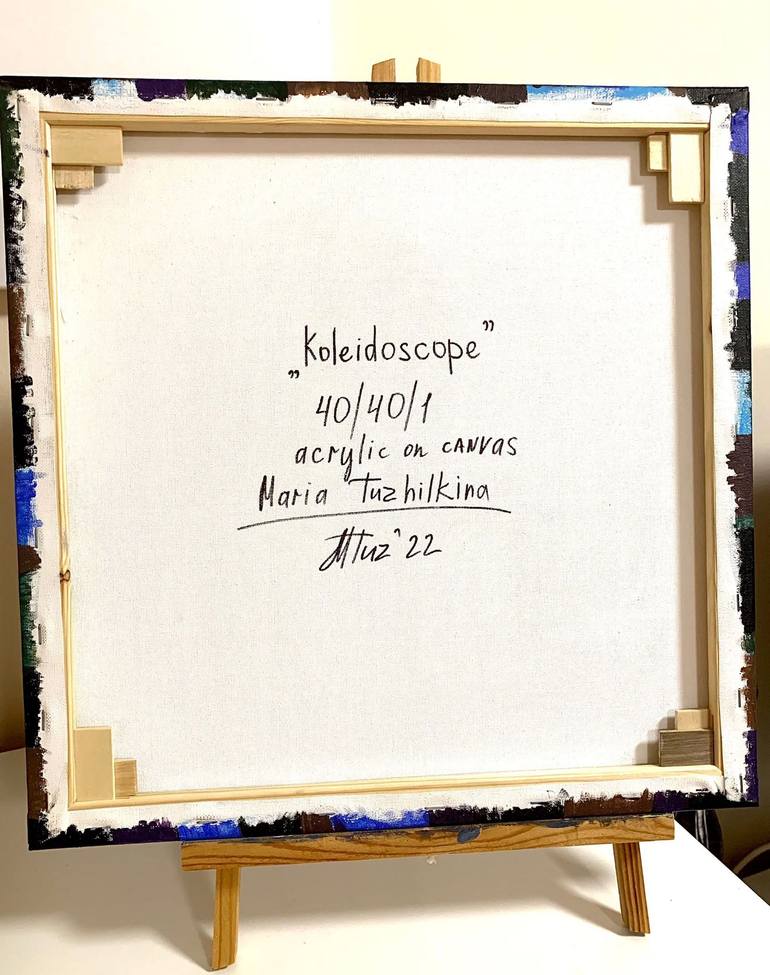 „Koleidoscope”
40/40/1
acrylic on CANVAS
Maria Tuzhilkina
MTuz '22